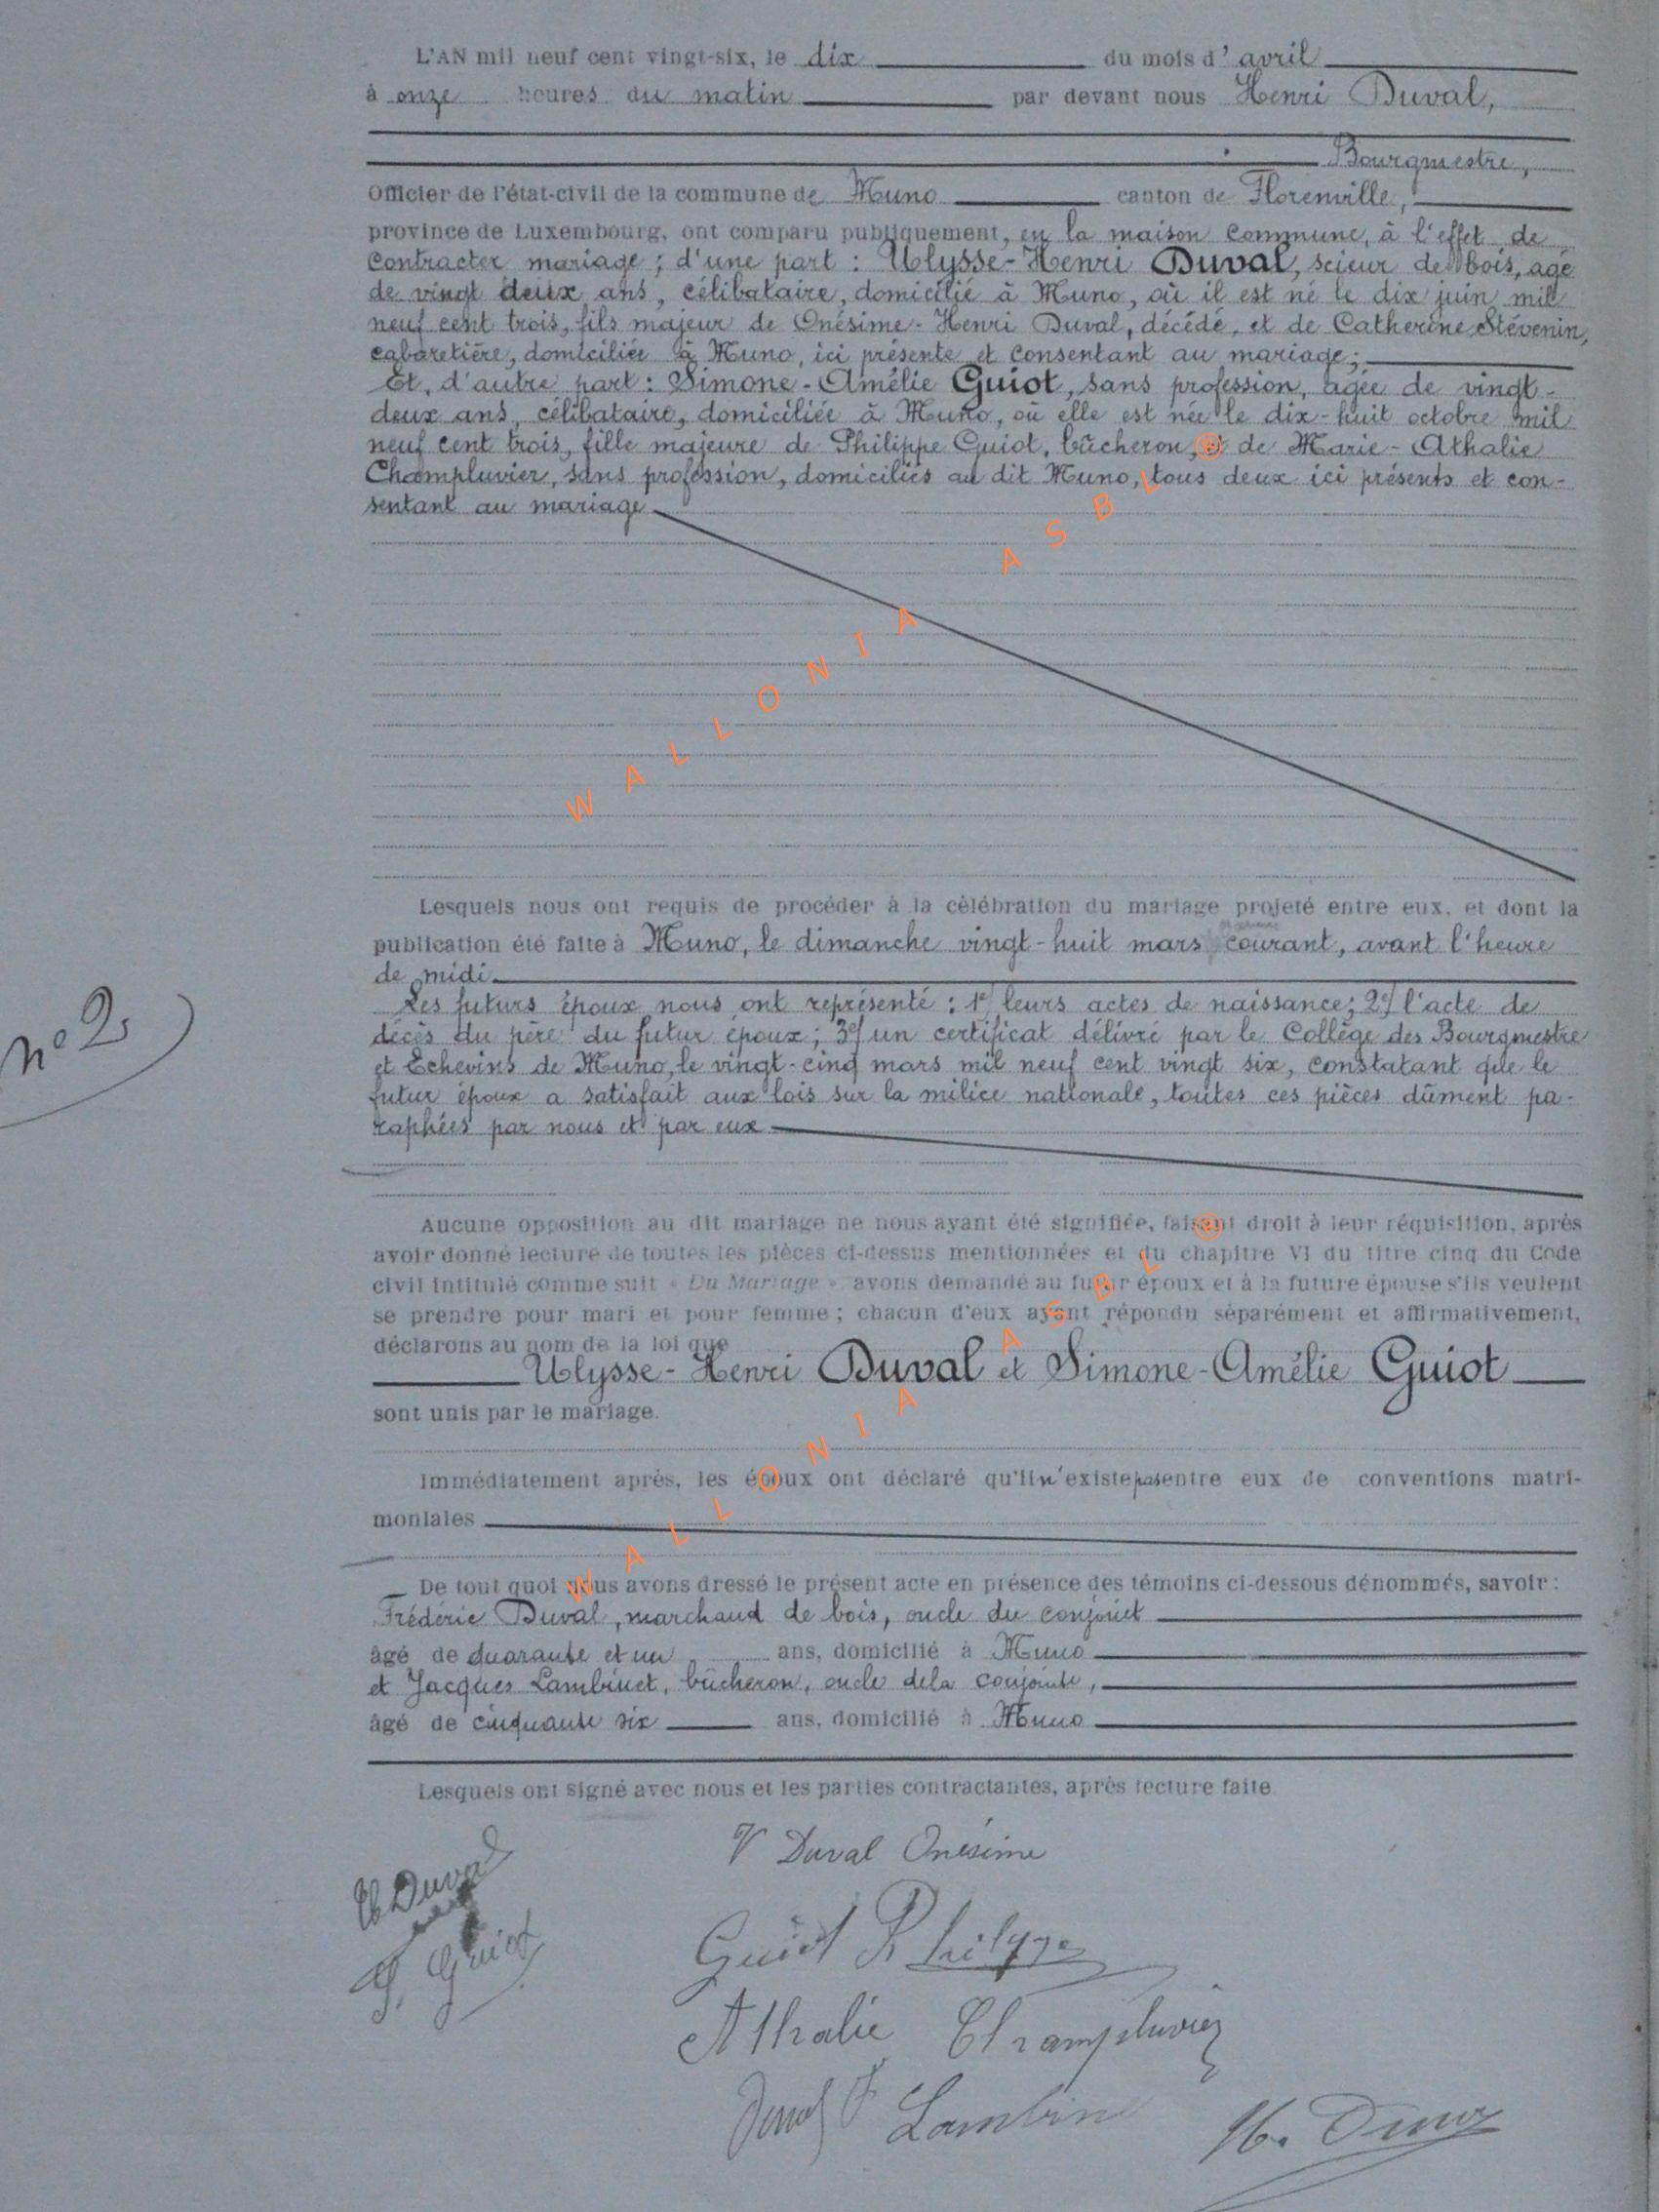 L'AN mil neuf cent vingt-six, le dix du mois d'avril
à onze heures du matin par devant nous Henri Duval,
Bourgmestre,
Officier de l'état-civil de la commune de Muno canton de Florenville,
province de Luxembourg, ont comparu publiquement, en la maison Commune, à l'effet de
Contracter mariage ; d'une part : Ulysse-Henri Duval, scieur de bois, agé
de vingt deux ans, célibataire, domicilié à Muno, où il est né le dix juin mil
neuf cent trois, fils majeur de Onésime-Henri Duval, décédé, et de Catherine Stévenin,
cabaretière, domiciliée à Muno, ici présente et consentant au mariage ;
Et, d'autre part : Simone-Amélie Guiot, sans profession, agée de vingt-
deux ans, célibataire, domiciliée à Muno, où elle est née le dix-huit octobre mil
neuf cent trois, fille majeure de Philippe Guiot, bûcheron, et de Marie-Athalie
Champluvier, sans profession, domiciliés au dit Muno, tous deux ici présents et con-
sentant au mariage
WALLONIA ASBL ®
Lesquels nous ont requis de procéder à la célébration du mariage projeté entre eux, et dont la
publication été faite à Muno, le dimanche vingt-huit mars courant, avant l'heure
de midi.
Les futurs époux nous ont représenté : 1°/ leurs actes de naissance ; 2°/ l'acte de
décès du père du futur époux ; 3°/ un certificat délivré par le Collège des Bourgmestre
et Echevins de Muno, le vingt-cinq mars mil neuf cent vingt six, constatant que le
futur époux a satisfait aux lois sur la milice nationale, toutes ces pièces dûment pa-
raphées par nous et par eux
n° 2
Aucune opposition au dit mariage ne nous ayant été signifiée, faisant droit à leur réquisition, après
avoir donné lecture de toutes les pièces ci-dessus mentionnées et du chapitre VI du titre cinq du Code
civil intitulé comme suit « Du Mariage » avons demandé au futur époux et à la future épouse s'ils veulent
se prendre pour mari et pour femme ; chacun d'eux ayant répondu séparément et affirmativement,
déclarons au nom de la loi que
Ulysse-Henri Duval et Simone-Amélie Guiot
sont unis par le mariage.
WALLONIA ASBL ®
Immédiatement après, les époux ont déclaré qu'il n'existe pas entre eux de conventions matri-
moniales
De tout quoi nous avons dressé le présent acte en présence des témoins ci-dessous dénommés, savoir :
Frédéric Duval, marchand de bois, oncle du conjoint
âgé de quarante et un ans, domicilié à Muno
et Jacques Lambinet, bûcheron, oncle dela conjointe,
âgé de cinquante six ans, domicilié à Muno
Lesquels ont signé avec nous et les parties contractantes, après lecture faite
V Duval Onésime
U Duval
S. Guiot
Guiot Philippe
Athalie Champluvier
Duval F Lambin
H. Duval